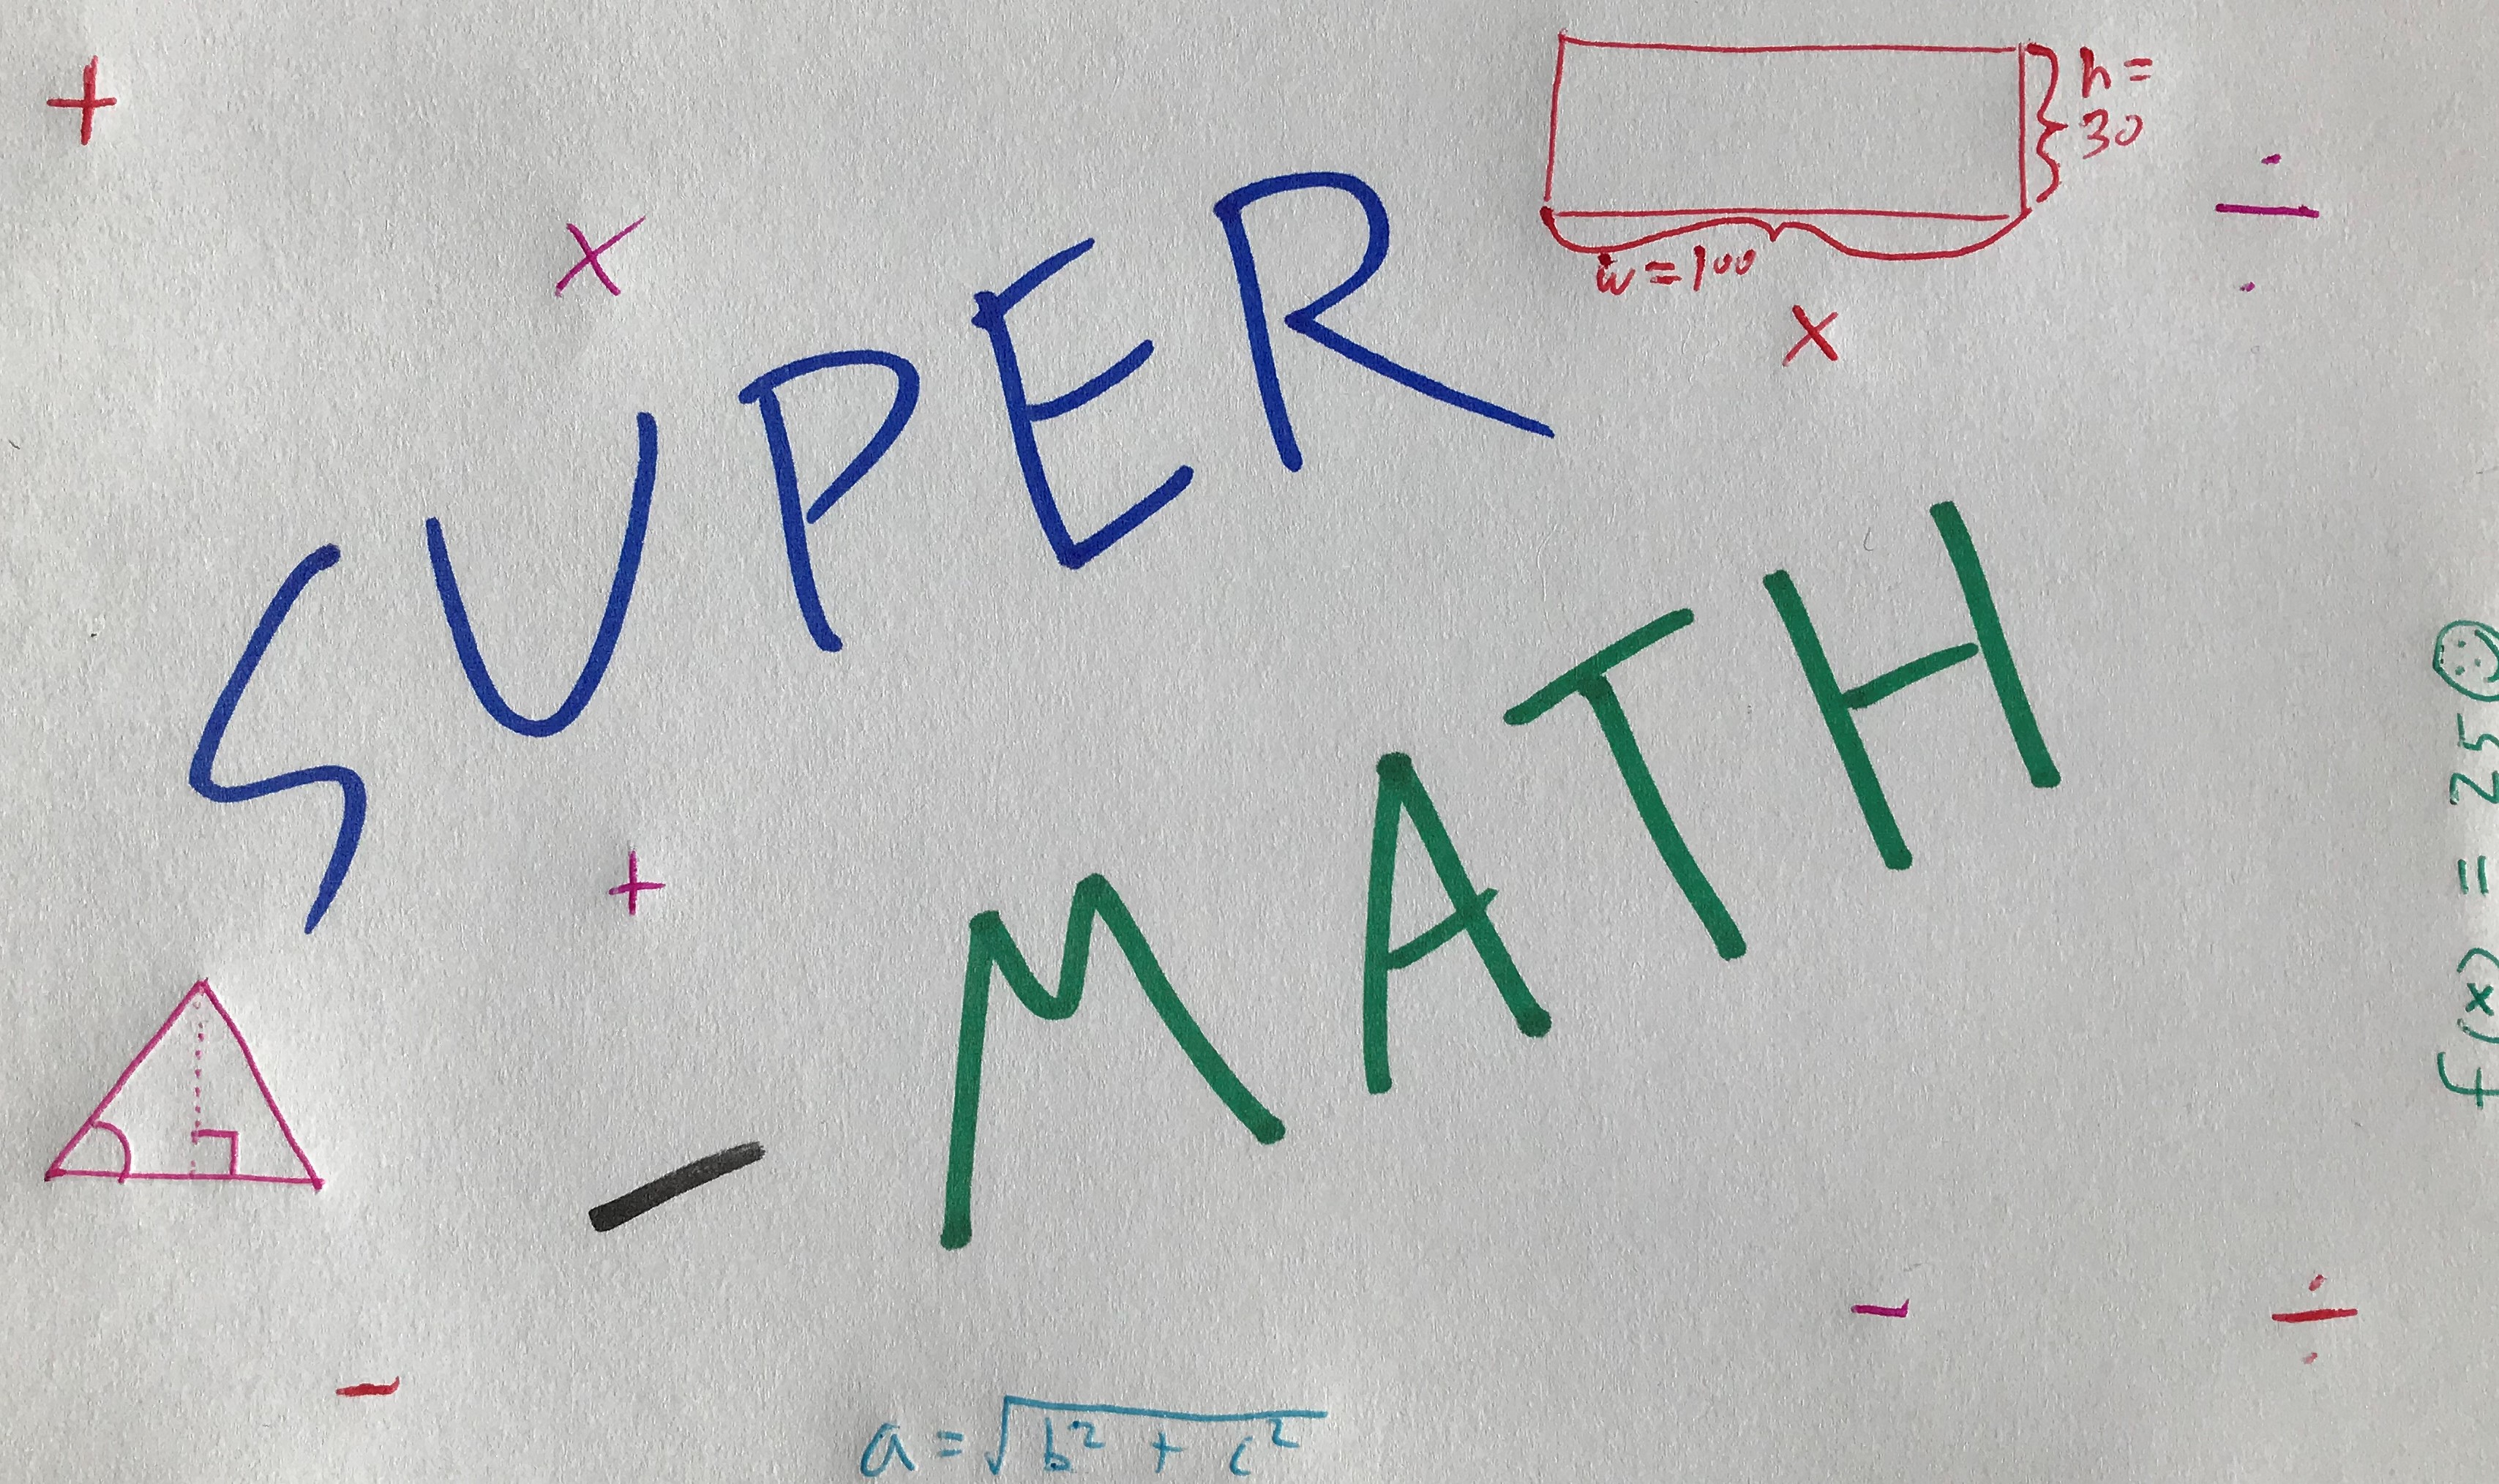 +
h =
30
÷
×
w = 100
×
SUPER
+
- MATH
f(x) = 25 ☺
-
÷
-
a = √(b² + c²)